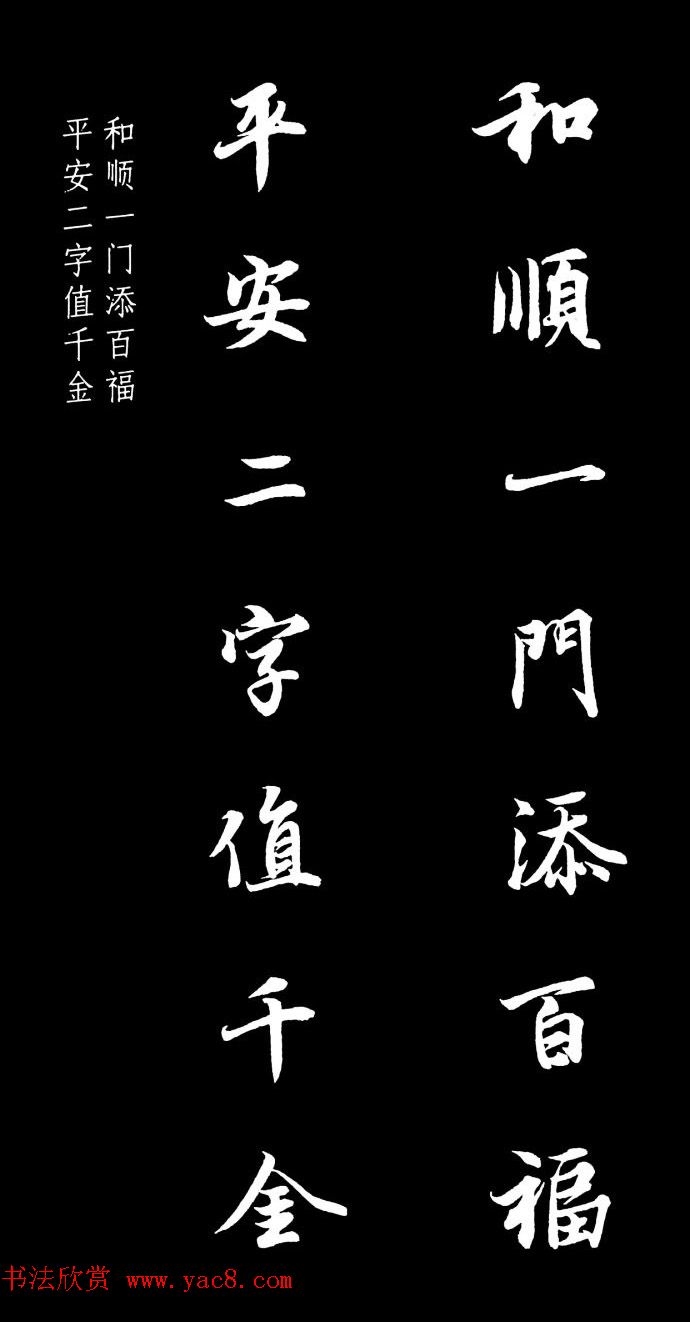 和順一門添百福
平安二字值千金
和顺一门添百福
平安二字值千金
书法欣赏 www.yac8.com